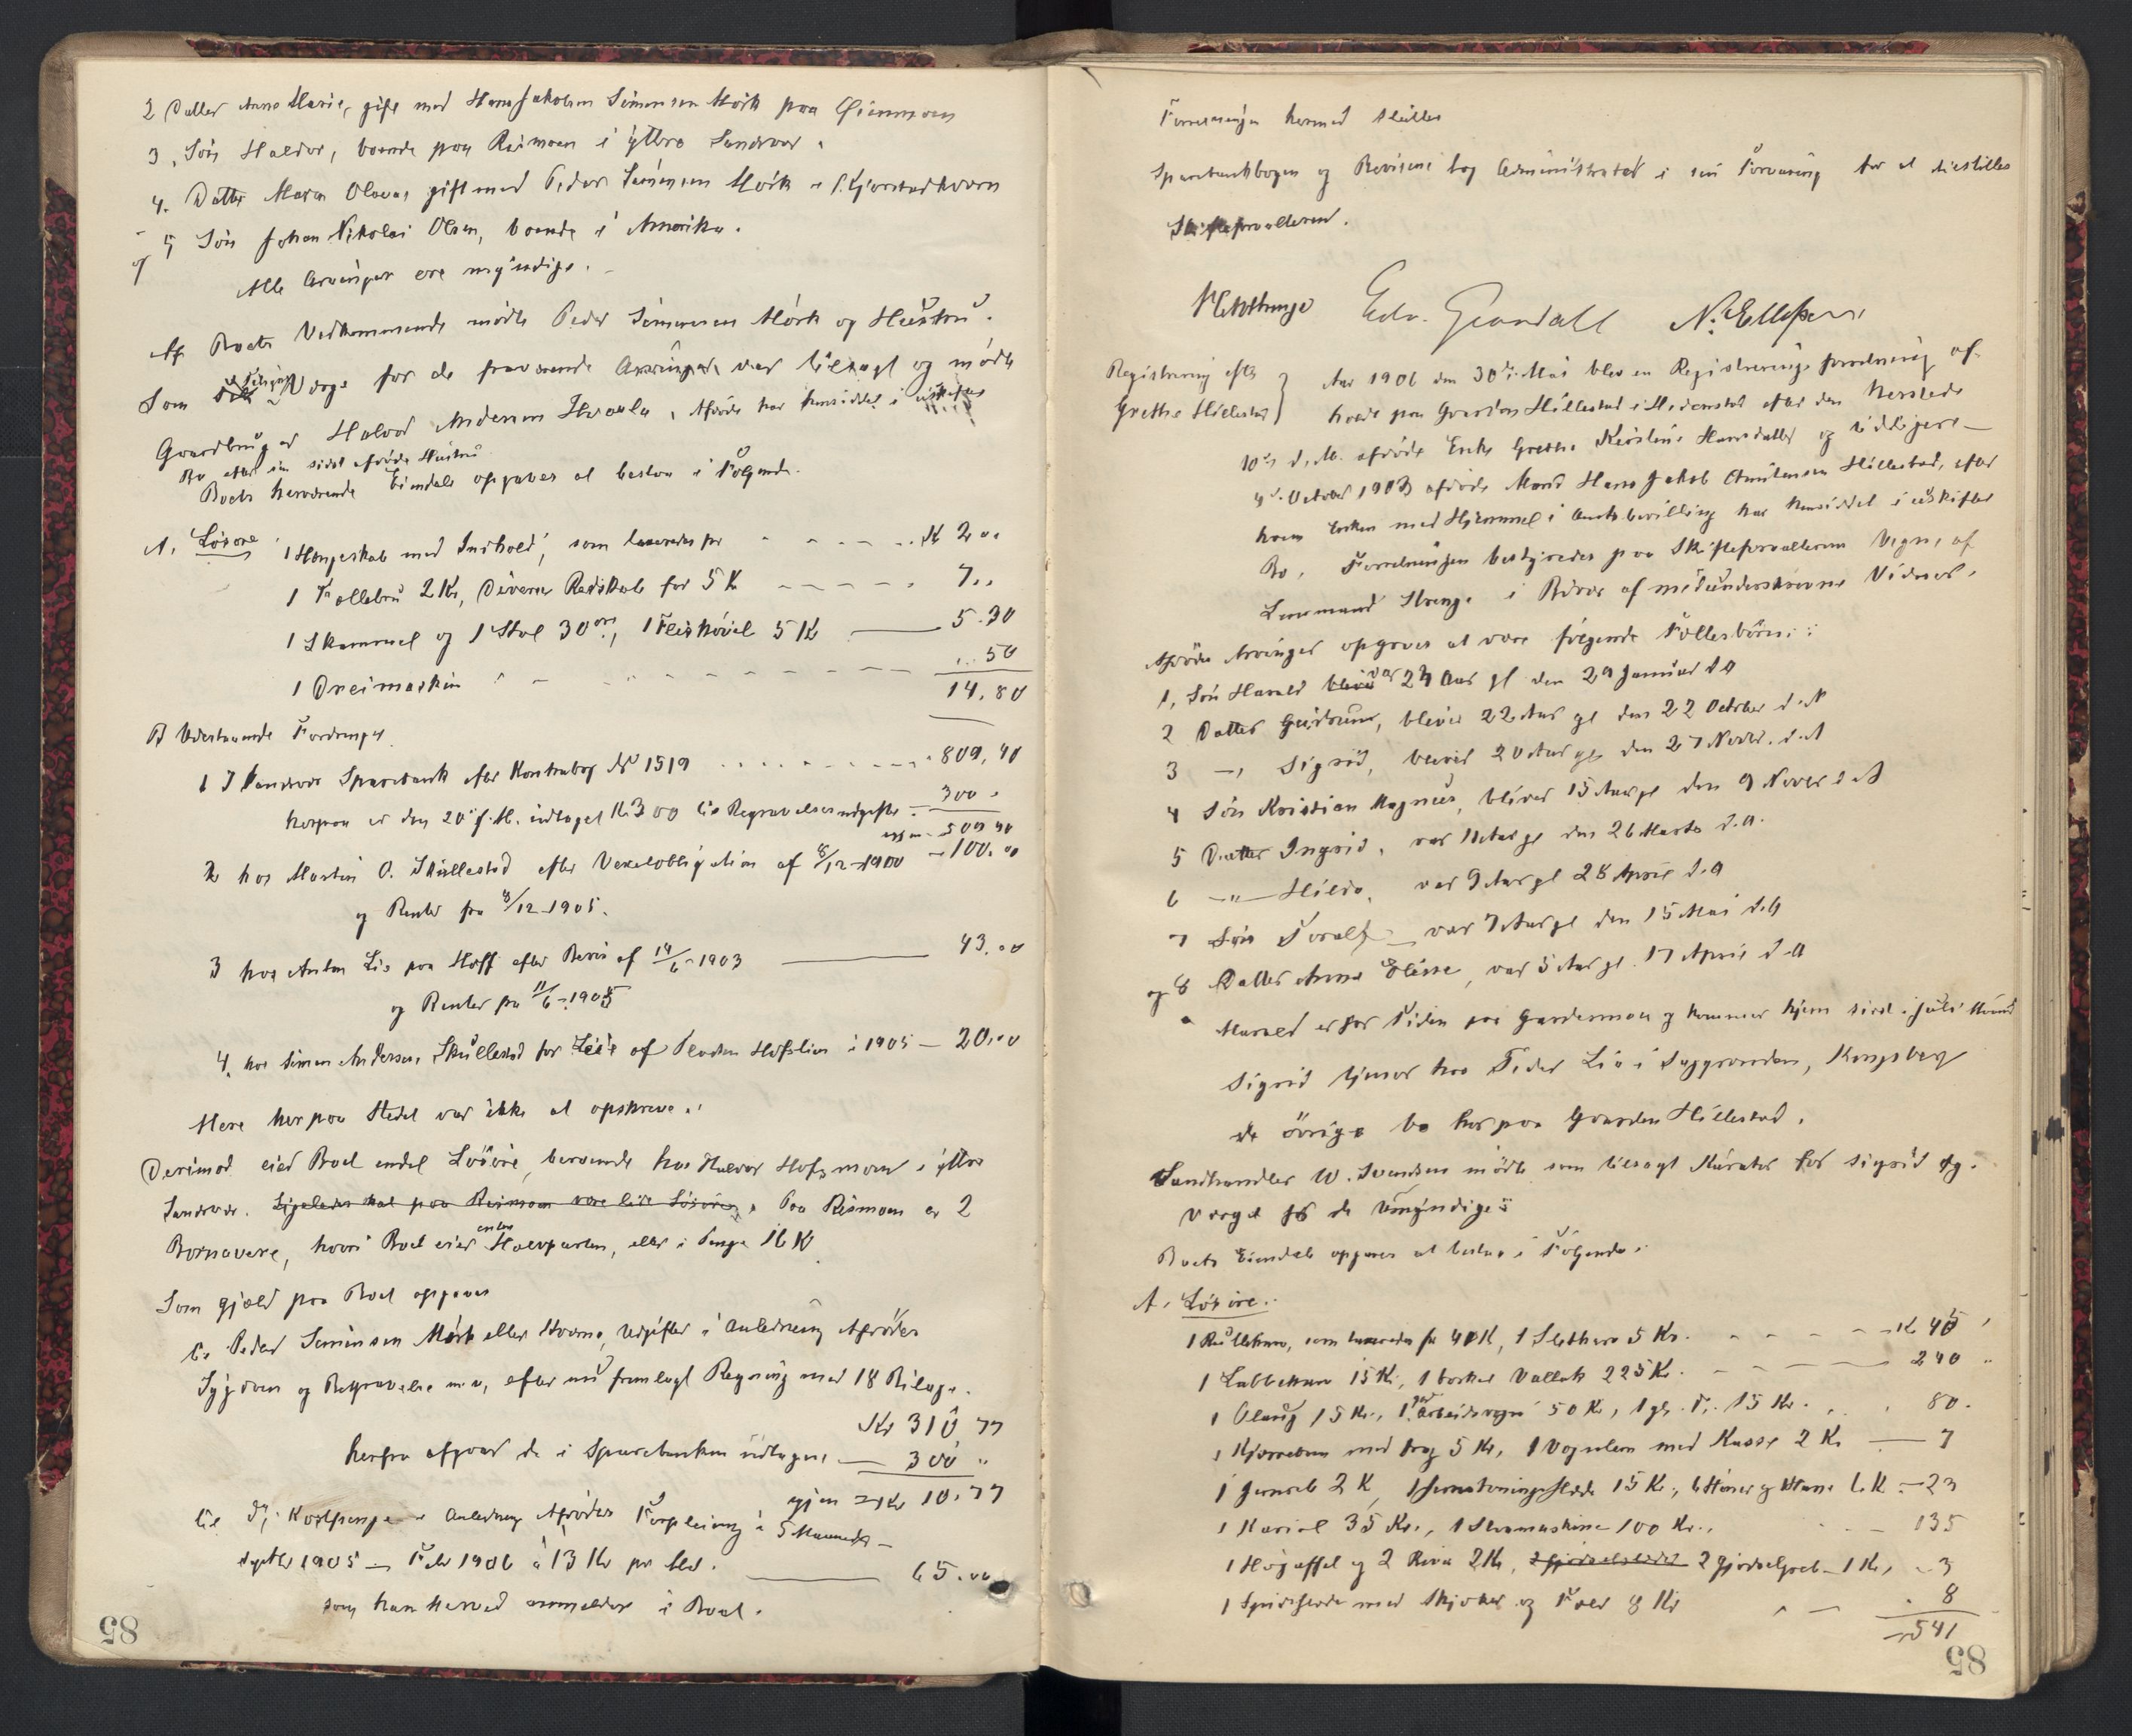 2 Datter Anne Marie, gift med Hans Jakobsen Simensen Mörk paa
3, Sön Haldor, boende paa Rismoen i yttre Sandsvær.
4. Datter Maren Olava, gift med Peder Simensen Mörk
og 5 Sön Johan Nikolai Olsen, boende i Amerika.
Alle Arvinger ere myndige.
Af Boets Vedkommende mödte Peder Simensen Mörk og Hustru.
Som Værge for de fraværende Arvinger var tilsagt og mödte
Gaardbruger Halvor Andersen , Afdöde har hensiddet i uskiftet
Bo efter sin sidst afdöde Hustru
Boets herværende Eiendele opgaves at bestaa i Fölgende.
A. Lösöre 1 Hengeskab med Indhold, som taxeredes for Kr 2 "
1 2 Kr, Diverse Redskab for 5 K 7 "
1 Skammel og 1 Stol 30 öre, 1 5 Kr 5.30
1 Dreimaskin " 50
14.80
B Udestaaende Fordringer
1 I Sandsvær Sparebank efter Kontrabog No 1519 809,40
herpaa er den 20 f.M. udtaget Kr 300 til Begravelsesudgifter 300 "
igjen 509 40
2 hos Martin O. Skullestad efter Vexelobligation af 8/12-1900 100.00
og Renter fra 8/12-1905.
3 hos Anton Lia paa Hoff efter Bevis af 14/6-1903 43.00
og Renter fra 11/6-1905
4. hos Simen Andersen Skullestad for Leie af Pladsen Hofslien i 1905 — 20.00
Mere her paa Stedet var ikke at opskrive.
Derimod eier Boet endel Lösöre, beroende hos Halvor Hofsmoen i yttre
Sandsvær. Ligeledes skal paa Rismoen være lidt Lösöre. Paa Rismoen er 2
, hvori Boet eier Halvparten, eller i Penge 16 K
Som Gjæld paa Boet opgaves
til Peder Simensen Mörk eller , Udgifter i Anledning Afdödes
Sygdom og Begravelse m.v, efter nu fremlagt Regning med 18 Bilage.
Kr 310 77
herfra afgaar de i Sparebanken udtagne — 300 "
igjen Kr 10.77
til D. Kostpenge i Anledning Afdödes Forpleining i 5 Maaneder —
Septbr 1905 — Febr 1906 à 13 Kr pr Md. 65.00
som han herved anmelder i Boet.
85
Forretningen hermed sluttet
Sparebankbogen og Beviserne tog Administrator i sin Forvaring for at tilstilles
Skifteforvalteren.
Edv. Grandall N. Ellefsen
Registrering efter
Grethe Hillestad
Aar 1906 den 30te Mai blev en Registreringsforretning af-
holdt paa Gaarden Hillestad i Hedenstad efter den hersteds
10de d.M. afdöde Enke Grethe Kirstine Hansdatter og tidligere —
4de October 1903 afdöde Mand Hans Jakob Amundsen Hillestad, efter
hvem Enken med Hjemmel i Amtsbevilling har hensiddet i uskiftet
Bo. Forretningen bestyredes paa Skifteforvalterens Vegne af
Lensmand i Overvær af medunderskrevne Vidner.
Afdödes Arvinger opgaves at være fölgende Fællesbörn:
1, Sön Harald var 24 Aar gl den 29 Januar d.A
2 Datter Gudrun, bliver 22 Aar gl den 22 October d.A
3 —" Sigrid, bliver 20 Aar gl den 27 Novbr. d.A
4 Sön Kristian Magnus, bliver 15 Aar gl den 9 Novbr d.A
5 Datter Ingrid, var 11 Aar gl den 26 Marts d.A.
6 —"— Hilda, var 9 Aar gl 28 April d.A
7 Sön Toralf — var 7 Aar gl den 15 Mai d.A
og 8 Datter Anna Elise, var 5 Aar gl. 17 April d.A
Harald er for Tiden paa Gardermoen og kommer hjem sidst i Juli Maaned
Sigrid tjener hos Peder Lia i , Kongsberg
de övrige bo her paa Gaarden Hillestad.
Landhandler W. Svendsen mödte som tilsagt Kurator for Sigrid og
Værge for de umyndige.
Boets Eiendele opgaves at bestaa i Fölgende:
A. Lösöre.
1 , som taxeredes for 40 K, 1 5 Kr. Kr 45 "
1 15 Kr, 1 borket Vallak 225 Kr. 240 "
1 Plaug 15 Kr., 1 Arbeidsvogn 50 Kr, 1 gl. D. 15 Kr. 80.
1 Kjærrebom med 5 Kr, 1 med Kasse 2 Kr — 7
1 2 K, 1 15 Kr, 6 Höner og Hane 6 K — 23
1 Kariol 35 Kr., 1 Slaamaskine 100 Kr., 135
1 Höigaffel og 2 River 2 Kr, 2 1 Kr, 3
1 med og 8 Kr 8
541
85